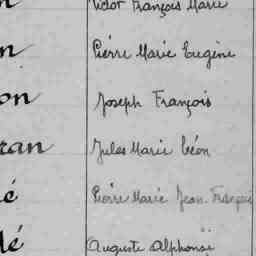 n Victor François Marie
n Pierre Marie Eugène
on Joseph François
ran Jules Marie Léon
é Pierre Marie Jean François
lé Auguste Alphonse